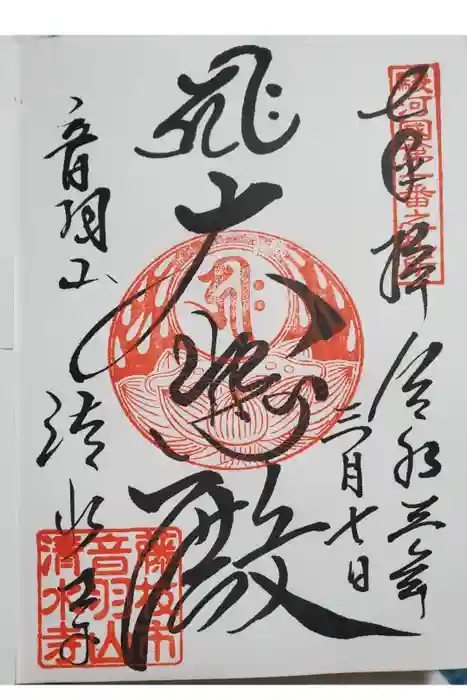 駿河國第一番
奉拝
令和三年
三月七日
大悲殿
音羽山
清水寺
藤枝市
音羽山
清水寺